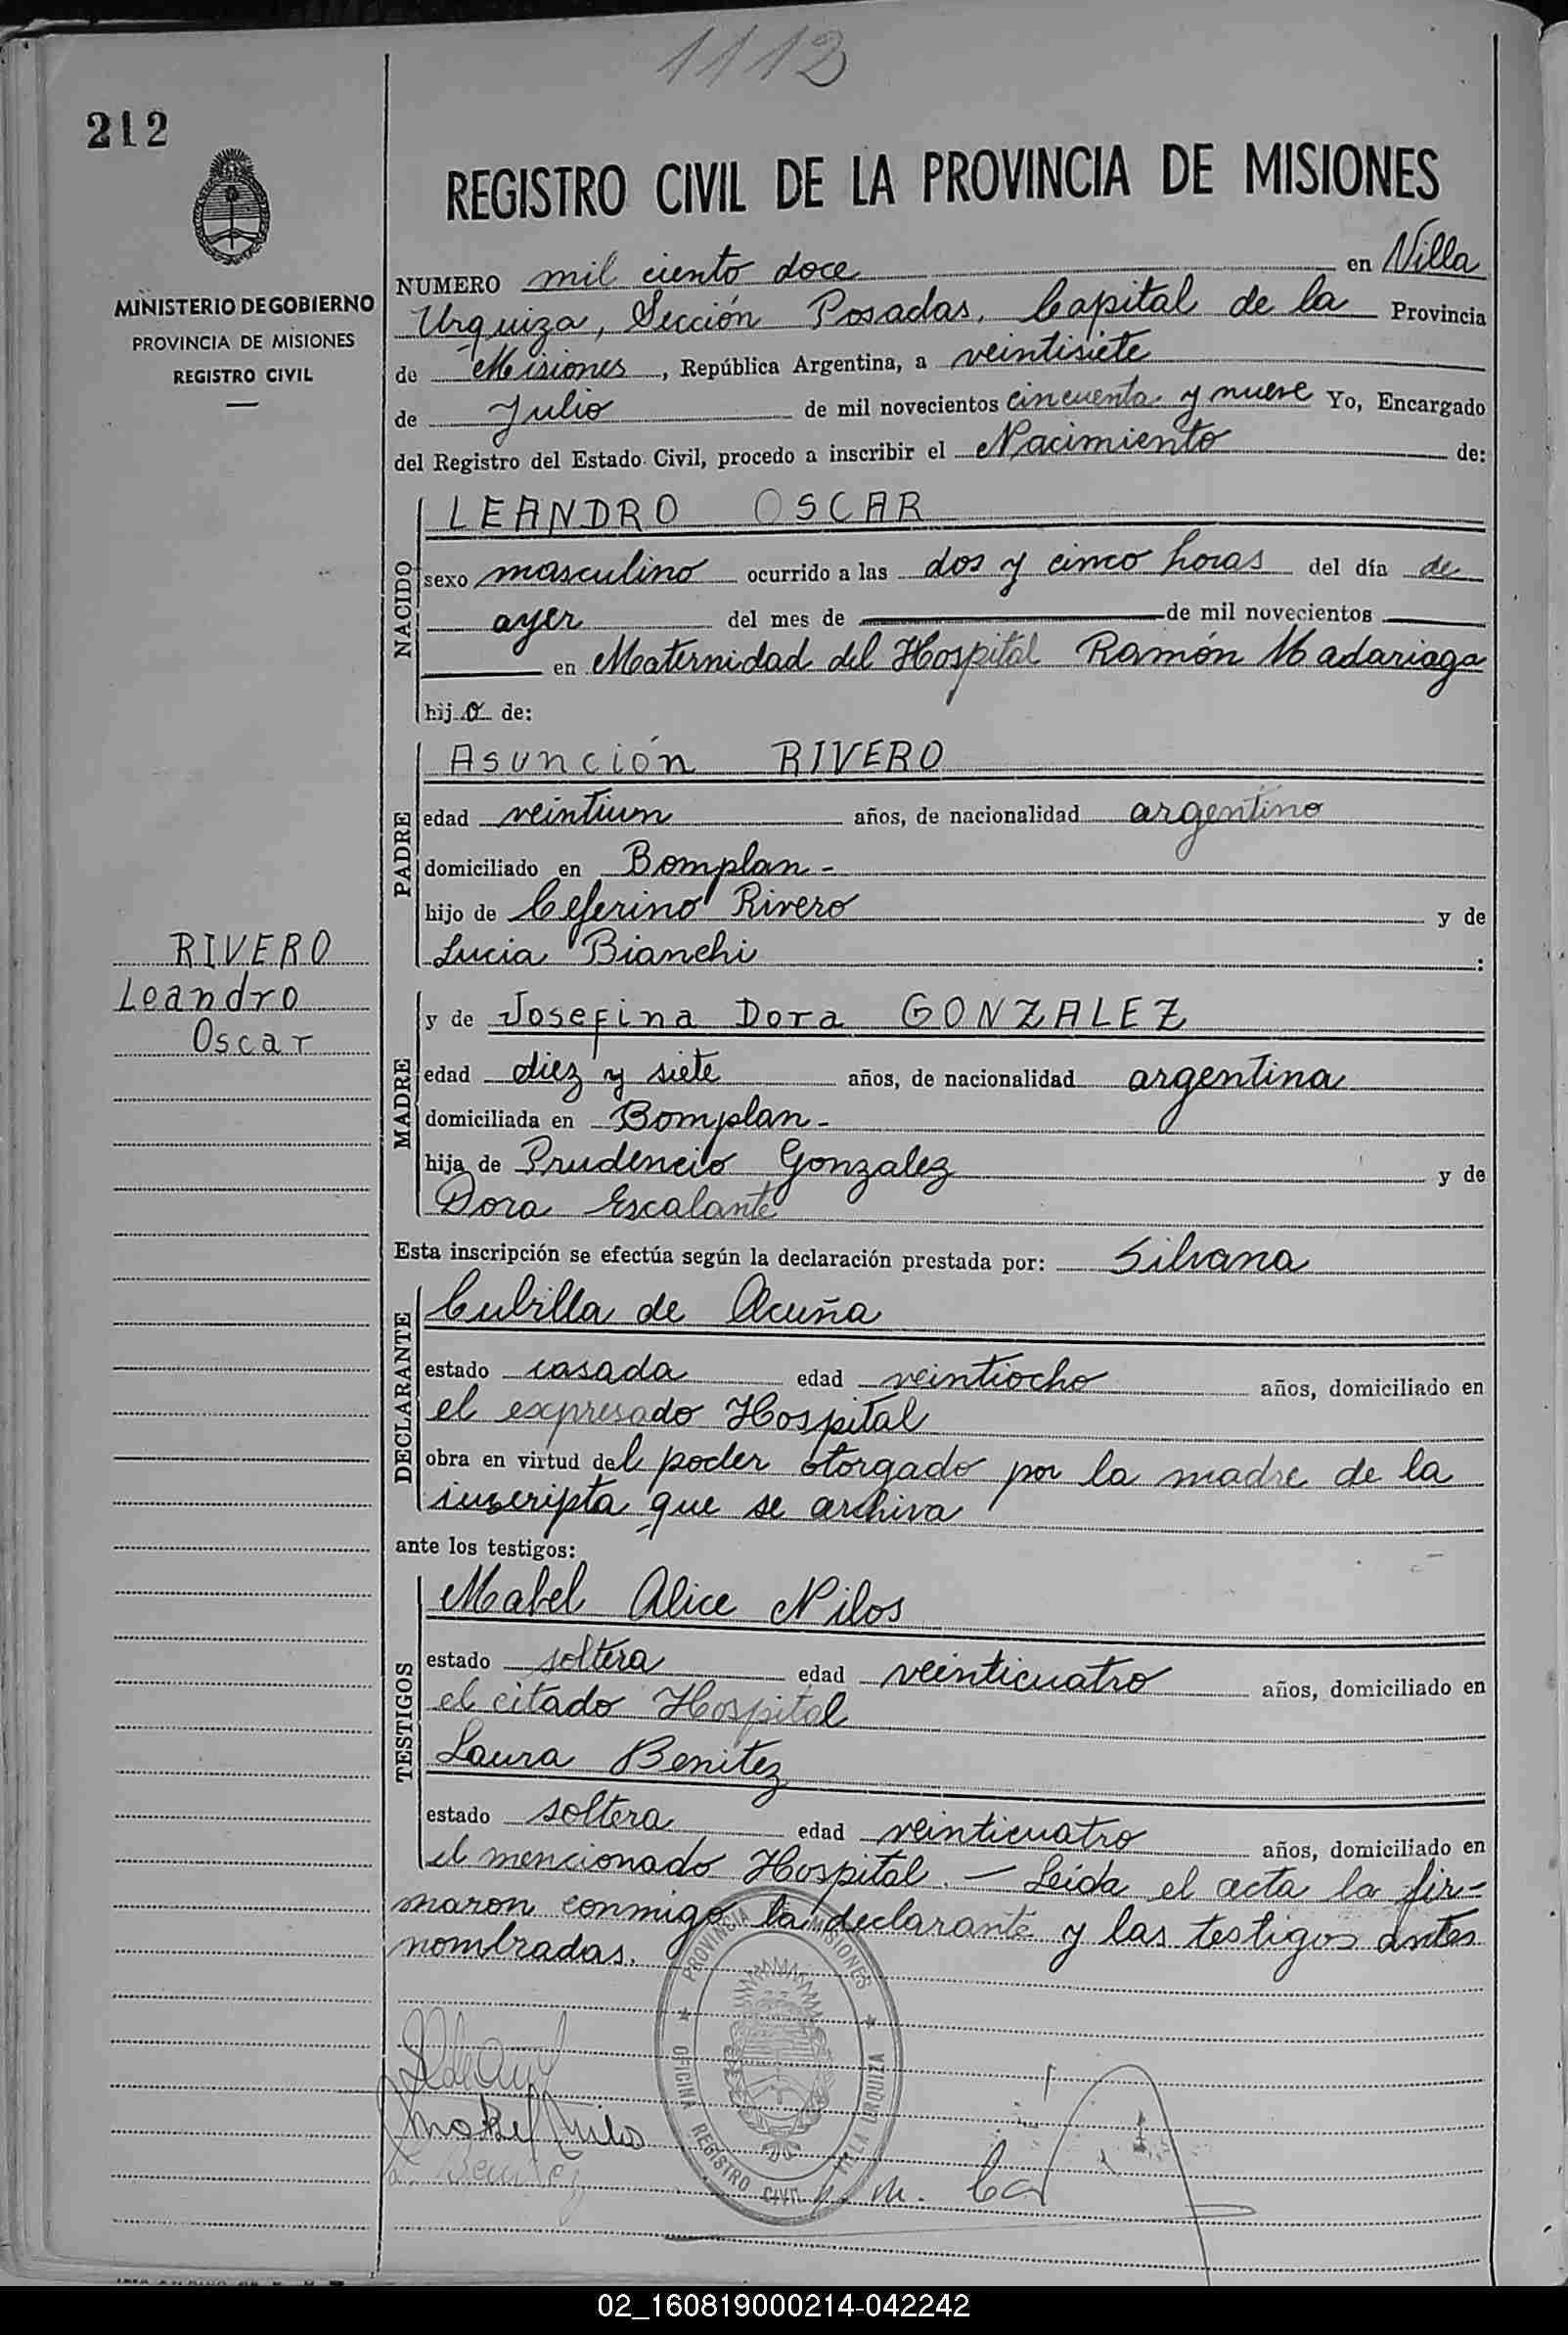 1112
212
REGISTRO CIVIL DE LA PROVINCIA DE MISIONES
MINISTERIO DE GOBIERNO
PROVINCIA DE MISIONES
REGISTRO CIVIL
NUMERO mil ciento doce en Villa
Urquiza, Sección Posadas, Capital de la Provincia
de Misiones, República Argentina, a veintisiete
de Julio de mil novecientos cincuenta y nueve Yo, Encargado
del Registro del Estado Civil, procedo a inscribir el Nacimiento de:
NACIDO
LEANDRO OSCAR
sexo masculino ocurrido a las dos y cinco horas del día de
ayer del mes de de mil novecientos
en Maternidad del Hospital Ramón Madariaga
hijo de:
PADRE
Asunción RIVERO
edad veintiun años, de nacionalidad argentino
domiciliado en Bomplan -
hijo de Ceferino Rivero y de
Lucia Bianchi :
RIVERO
Leandro
Oscar
MADRE
y de Josefina Dora GONZALEZ
edad diez y siete años, de nacionalidad argentina
domiciliada en Bomplan -
hija de Prudencio Gonzalez y de
Dora Escalante
Esta inscripción se efectúa según la declaración prestada por: Silvana
DECLARANTE
Cubilla de Acuña
estado casada edad veintiocho años, domiciliado en
el expresado Hospital
obra en virtud del poder otorgado por la madre de la
inscripta que se archiva
ante los testigos:
TESTIGOS
Mabel Alice Nilos
estado soltera edad veinticuatro años, domiciliado en
el citado Hospital
Laura Benitez
estado soltera edad veinticuatro años, domiciliado en
el mencionado Hospital. - Leída el acta la fir-
maron conmigo la declarante y las testigos antes
nombradas.
PROVINCIA MISIONES
OFICINA REGISTRO CIVIL VILLA URQUIZA
02_160819000214-042242